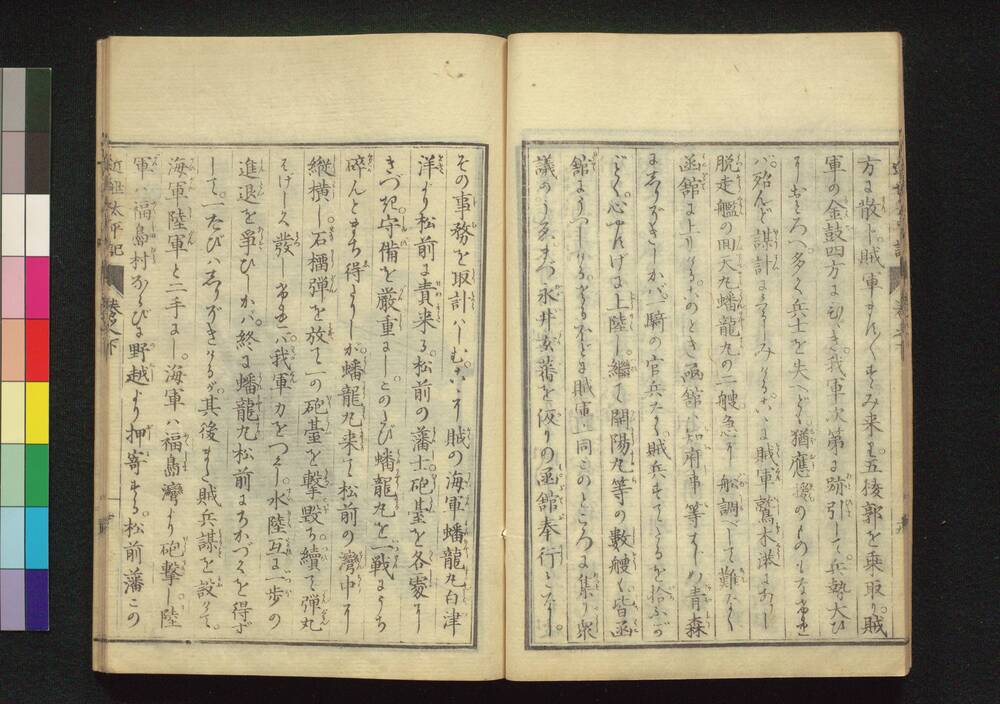 方に散し賊軍まんまんすすみ来り五稜郭を乗取り賊
軍の金鼓四方にひゞき我軍次第に跡引して兵勢大ひ
におとろへ多く兵士を失へども猶應援のものもなければ
バ殆んど謀計に
賊軍鷲木港に
脱走艦の回天丸蟠龍丸の二艘急に舩調べして難なく
函舘に上りける
このとき函舘ハ知府事等すべて青森
にしりぞきしかバ一騎の官兵だも
賊兵すてたるを拾ふが
ごとく心やすげに上陸し繼て開陽丸等の數艘も皆函
舘に
賊軍一同このところに集り衆
議のうへまづ永井玄蕃を仮りの函舘奉行となし
その事務を取計ハしむこゝに賊の海軍蟠龍丸白津
洋より松前に責来る松前の藩士砲臺を各處に
きづき守備を厳重にしこのたび蟠龍丸を一戦にうち
碎んとまち得たりしが蟠龍丸来て松前の灣中に
縦横し石榴弾を放て一の砲臺を撃毀ち續て弾丸
はげしく發しければ我軍力をつくし水陸互に一歩の
進退を爭ひしかバ終に蟠龍丸松前にちかづくを得ず
して一たびハしりぞきけるが其後また賊兵謀を設けて
海軍陸軍と二手にし海軍ハ福島灣より砲撃し陸
軍ハ福島村ならびに野越より押寄する松前藩この
近世太平記
巻之下